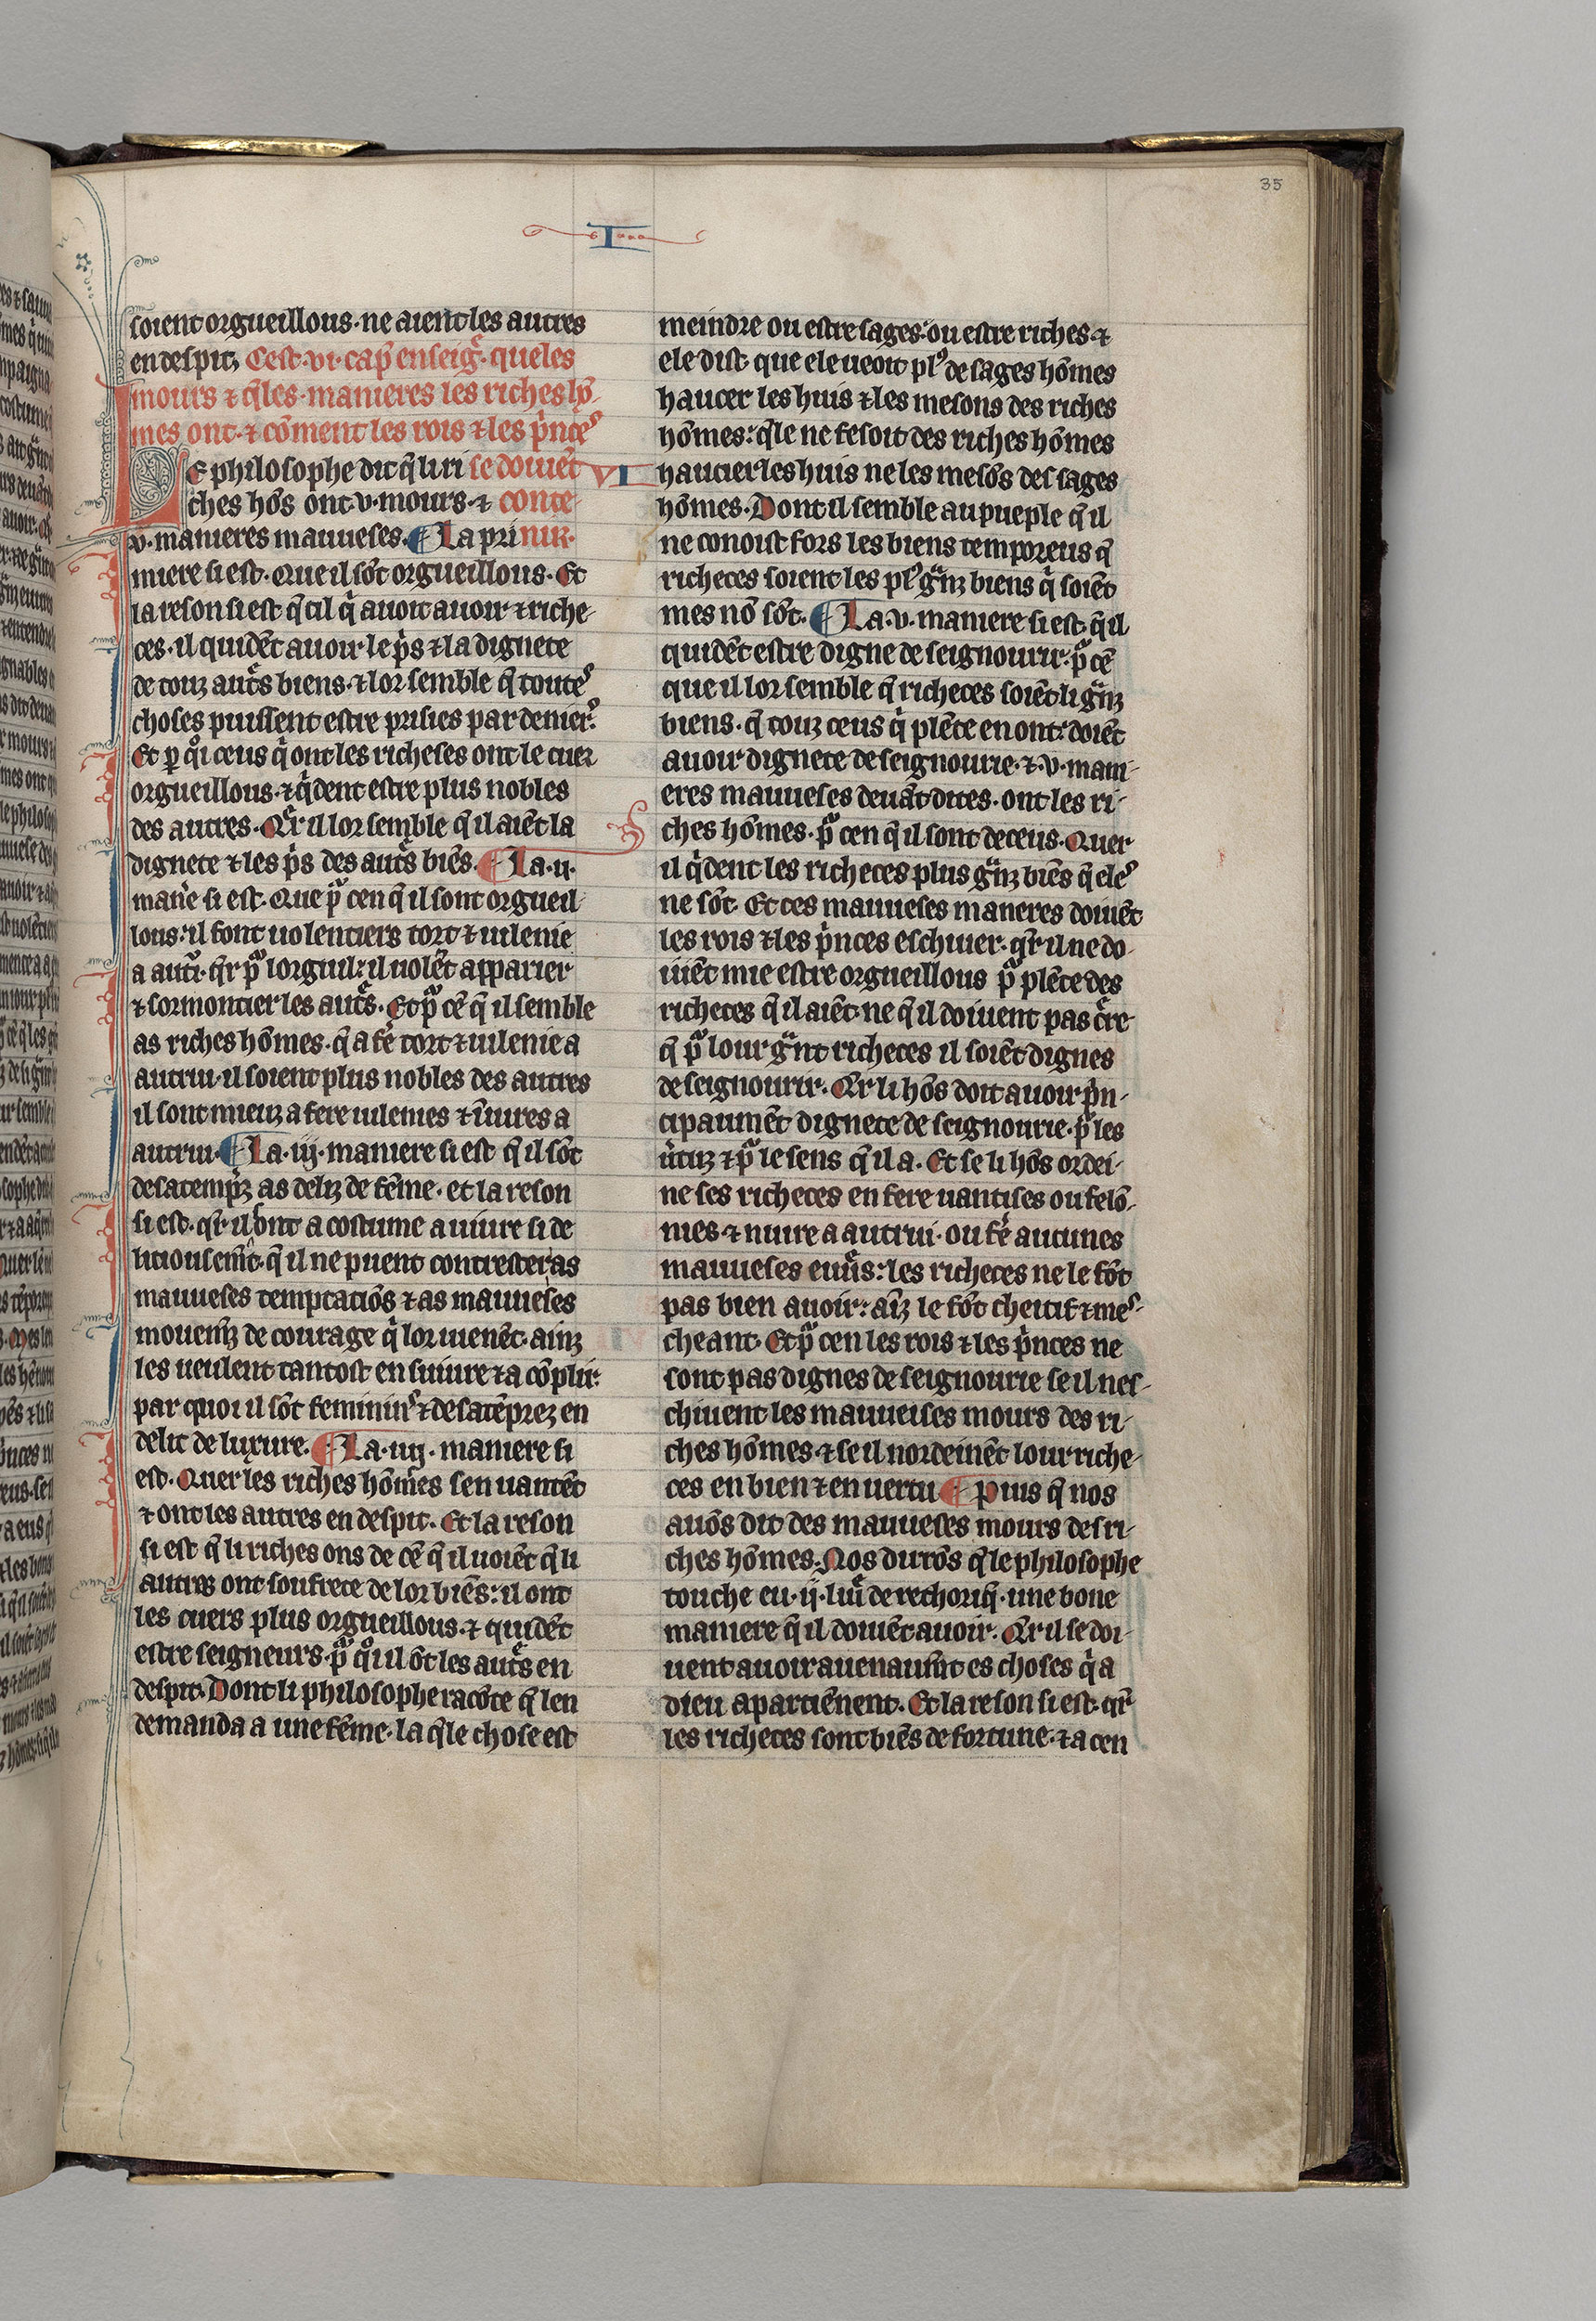 35
I
soient orgueillous· ne aient les autres
en despit; Cest· vi· cap̄ enseig̃· queles
mours ⁊ q̄les· manieres les riches hō-
mes ont· ⁊ cōment les rois ⁊ les p̍nces
Le philosophe dit q̄ li ri se doiuēt
ches hōs ont· v· mours· ⁊ conte
v· manieres mauueses. ¶ La pri nir·
VI
miere si est· Que il sōt orgueillous· Et
la reson si est q̄ cil q̍ auoit auoir ⁊ riche-
ces· il quidēt auoir le p̍s ⁊ la dignete
de touz aut̄s biens· ⁊ lor semble q̄ toutes
choses puissent estre prisies par deniers·
Et p̱ qͦi ceus q̍ ont les richeses ont le cuer
orgueillous· ⁊ q̍dent estre plus nobles
des autres· Q̄r il lor semble q̄ il aiēt la
dignete ⁊ les p̍s des aut̄s biēs. ¶ La· ij·
mani̍e si est· Que pͣ cen q̄ il sont orgueil-
lous: il font uolentiers tort ⁊ uilenie
a aut̍· q̄r pͣ lorguil: il uolēt apparier
⁊ sormontier les aut̄s· Et pͣ cē q̄ il semble
as riches hōmes· q̄ a fe̍ tort ⁊ uilenie a
autrui· il soient plus nobles des autres
il sont mieuz a fere uilenies ⁊ īiures a
autrui· ¶ La· iij· maniere si est q̄ il sōt
desatemp̍z as deliz de fēme· et la reson
si est· q̄r il ont a costume a uiure si de
liciousem̄t· q̄ il ne puent contrester as
mauueses temptaciōs ⁊ as mauueses
mouem̄z de courage q̍ lor uienēt· ainz
les ueulent tantost ensuiure ⁊ a cōplir:
par quoi il sōt femininͥs ⁊ desatēprez en
delit de luxure. ¶ La· iiij· maniere si
est· Quer les riches hōmes sen uantēt
⁊ ont les autres en despit· Et la reson
si est q̄ li riches ons de cē q̄ il uoiēt q̄ li
autres ont soufrete de lor biēs: il ont
les cuers plus orgueillous· ⁊ quidēt
estre seigneurs· pͣ qͦi il ōt les aut̄s en
despit· Dont li philosophe racōte q̄ len
demanda a une fēme· la q̄le chose est
meindre ou estre sages· ou estre riches· ⁊
ele dist que ele ueoit plꝰ de sages hōmes
haucer les huis ⁊ les mesons des riches
hōmes: q̄le ne fesoit des riches hōmes
haucier les huis ne les mesōs des sages
hōmes· Dont il semble au pueple q̄ il
ne conoist fors les biens temporeus q̄
richeces soient les plꝰ gͣnz biens q̍ soiēt
mes nō sōt· ¶ La· v· maniere si est q̄ il
quidēt estre digne de seignourir· pͣ cē
que il lor semble q̄ richeces soiēt li gͣnz
biens· q̄ touz ceus q̍ plēte en ont: doiēt
auoir dignete de seignourie· ⁊· v· mani-
eres mauueses deuāt dites· ont les ri-
ches hōmes· pͣ cen q̄ il sont deceus· Quer
il q̍dent les richeces plus gͣnz biēs q̄ eles
ne sōt· Et ces mauueses maneres doiuēt
les rois ⁊ les p̍nces eschiuer· q̄r il ne do-
iuēt mie estre orgueillous pͣ plēte des
richeces q̄ il aiēt· ne q̄ il doiuent pas c̍re-
q̄ pͣ lour gͣnt richeces il soiēt dignes
de seignourir· Q̄r li hōs doit auoir p̍n-
cipaumēt dignete de seignourie· pͣ les
u̍tuz ⁊ pͣ le sens q̄ il a· Et se li hōs ordei-
ne ses richeces en fere uantises ou felō-
nies· ⁊ nuire a autrui· ou fe̍ aucunes
mauueses euu̍s: les richeces ne le fōt
pas bien auoir: aīz le fōt cheitif ⁊ mes-
cheant· Et pͣ cen les rois ⁊ les p̍nces ne
sont pas dignes de seignourie se il nes-
chiuent les mauueises mours des ri-
ches hōmes· ⁊ se il nordeinēt lour riche-
ces en bien ⁊ en uertu ¶ Puis q̄ nos
auōs dit des mauueses mours des ri-
ches hōmes· Nos dirōs q̄ le philosophe
touche eu· ij· liu̍ de rethoriq̄· une bone
maniere q̄ il doiuēt auoir· Q̄r il se doi-
uent auoir auenaum̄t es choses q̍ a
dieu apartiēnent· Et la reson si est· q̄r
les richeces sont biēs de fortune· ⁊ a cen